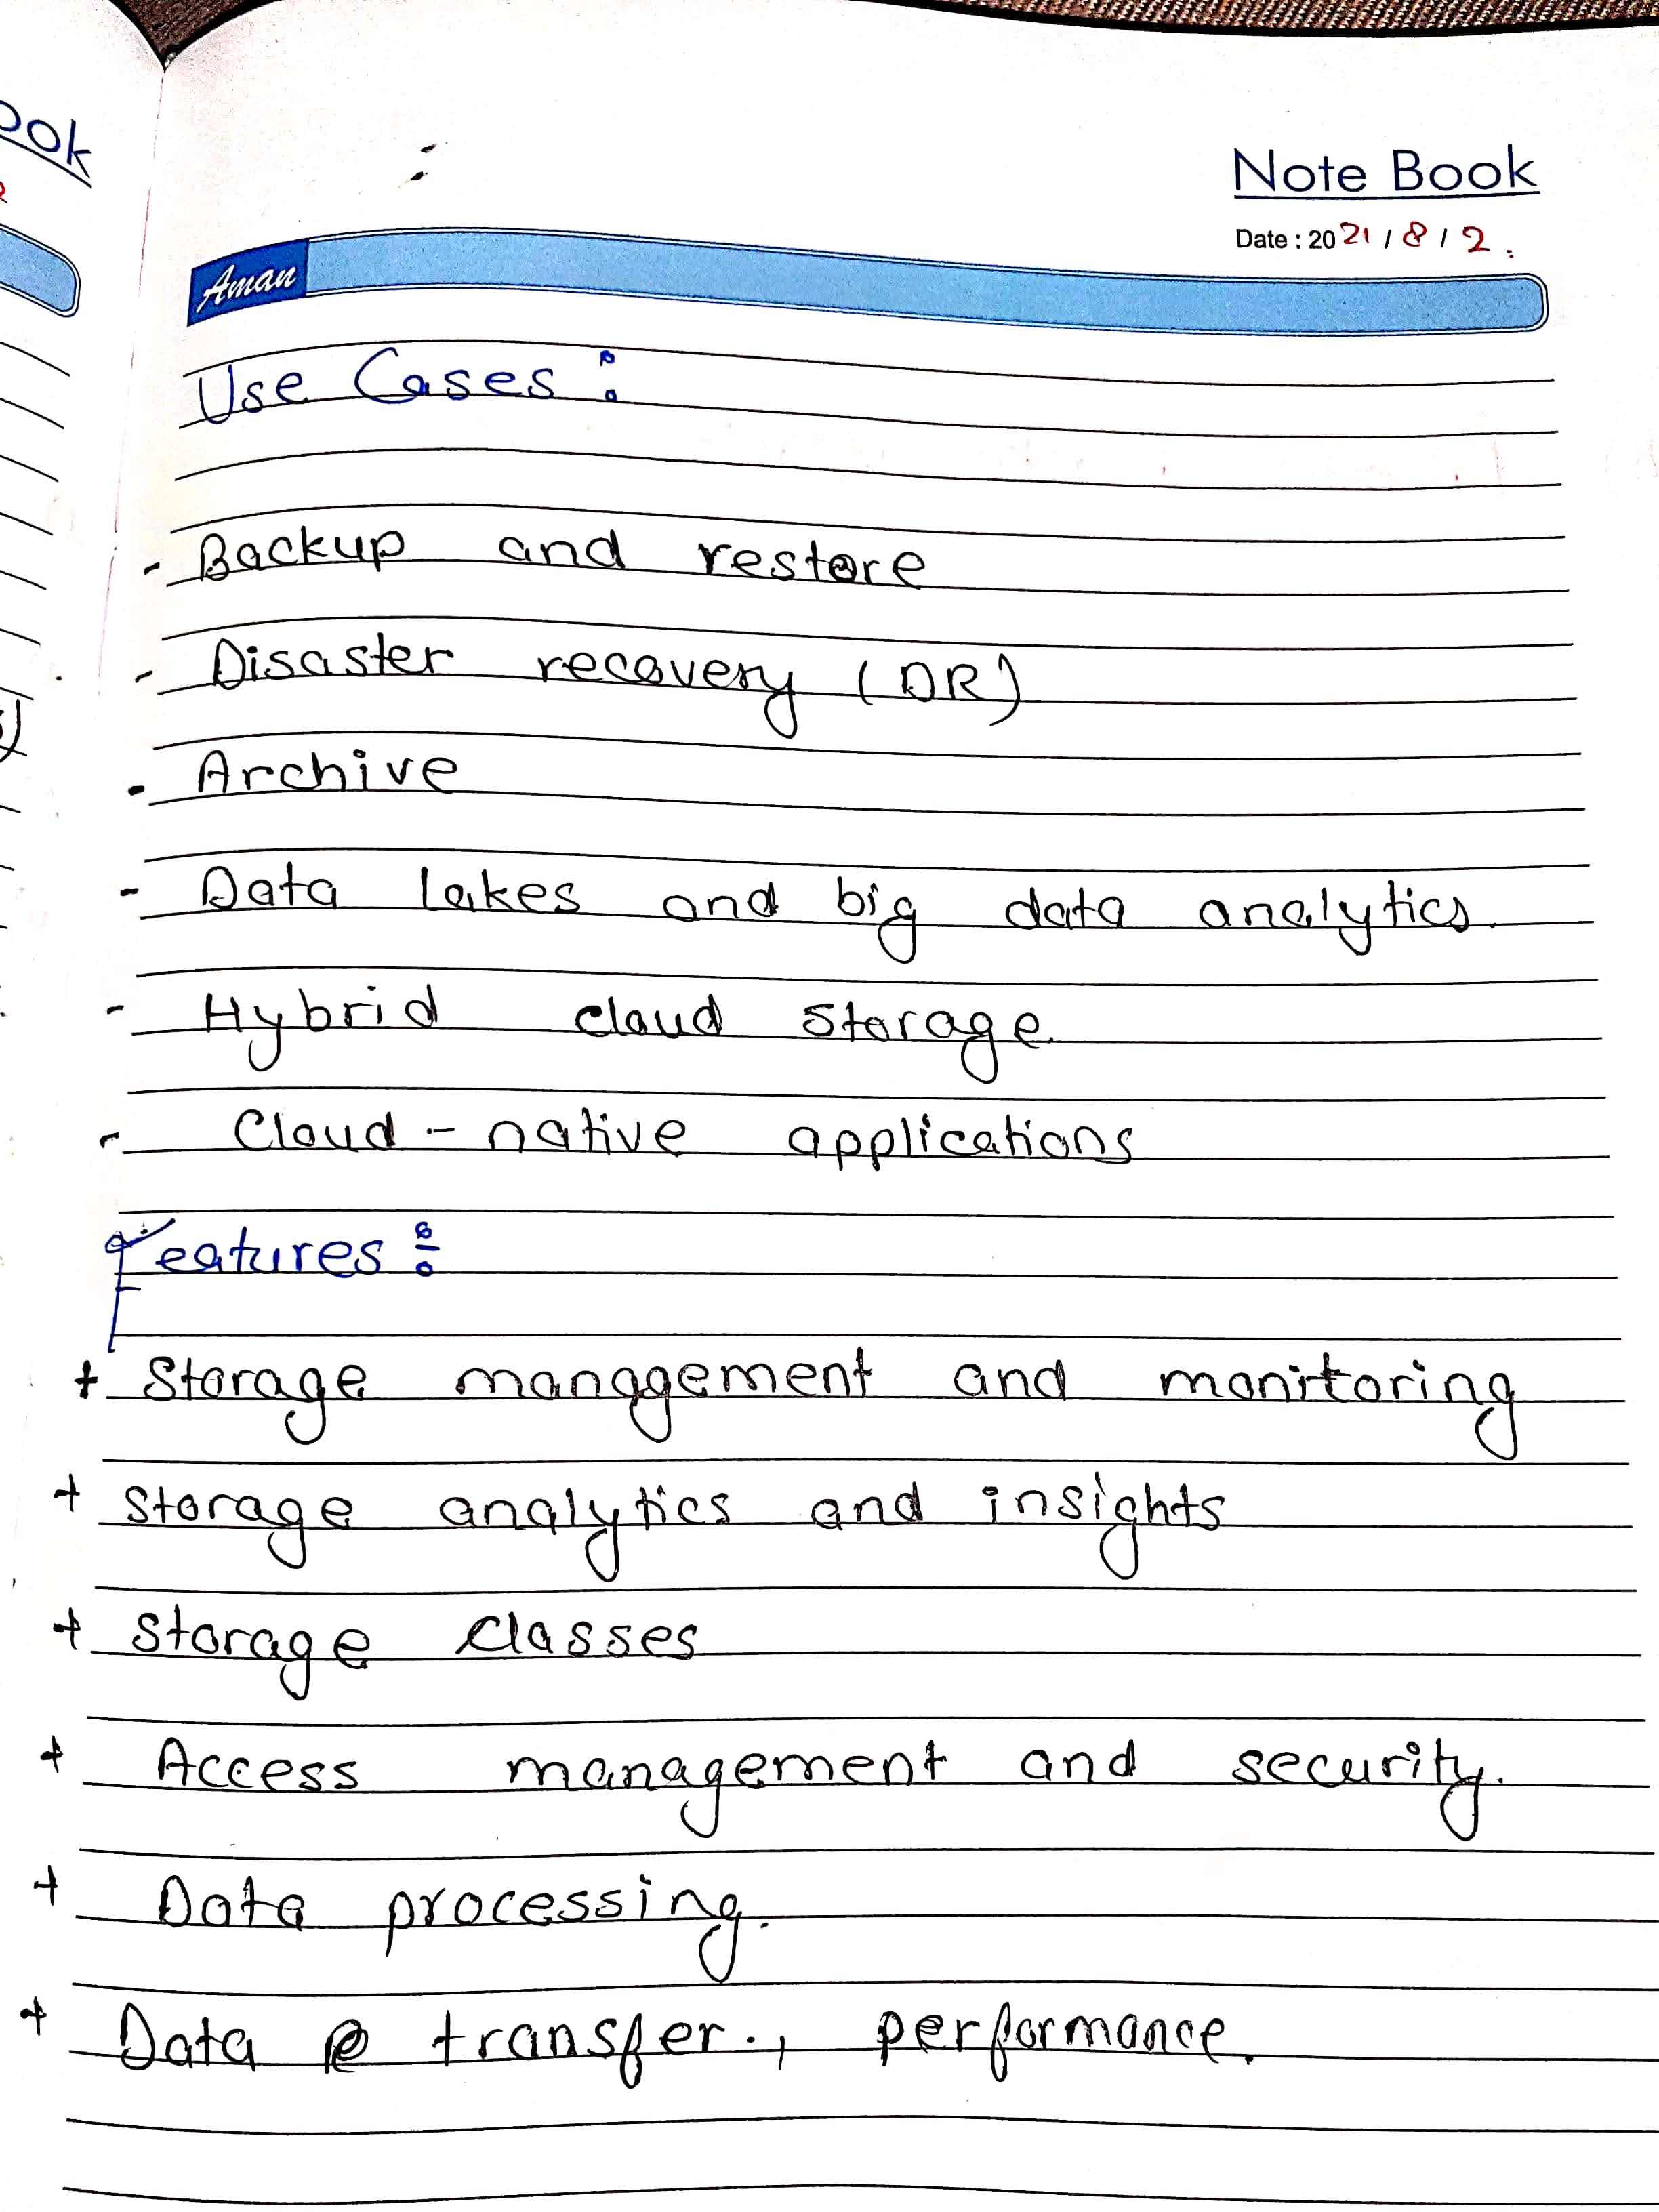 ook
Note Book
Date : 2021 / 8 / 2 .
Aman
Use Cases :
- Backup and restore
- Disaster recovery (DR)
- Archive
- Data lakes and big data analytics.
- Hybrid cloud storage.
- Cloud - native applications
Features :
+ Storage management and monitoring
+ Storage analytics and insights
+ Storage classes
+ Access management and security.
+ Data processing.
+ Data transfer., performance.